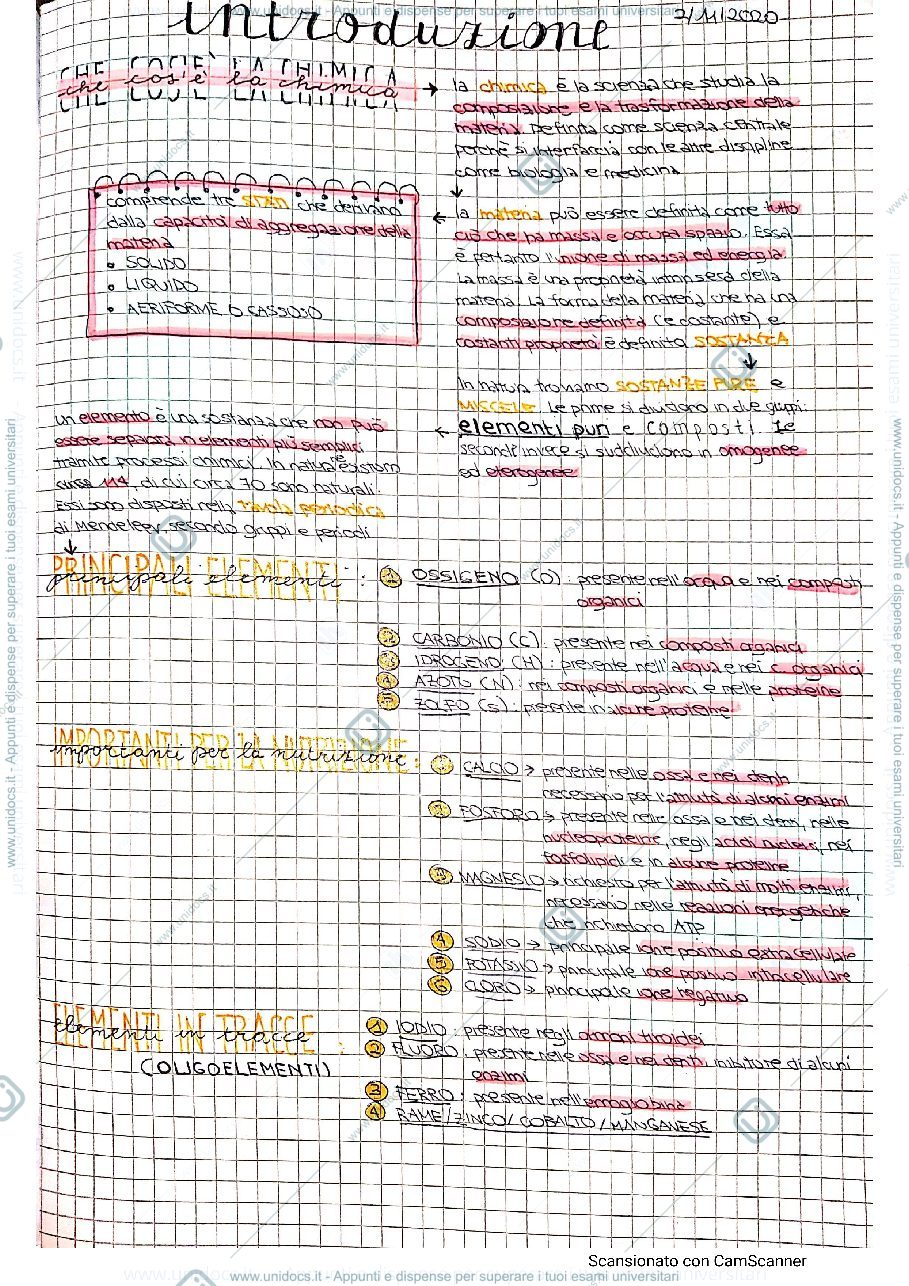 www.unidocs.it - Appunti e dispense per superare i tuoi esami universitari
introduzione
2/11/2020
CHE COS'È LA CHIMICA
che cos'è la chimica
la chimica è la scienza che studia la
composizione e la trasformazione della
materia. Definita come scienza centrale
perchè si interfaccia con le altre discipline
come biologia e medicina
la materia può essere definita come tutto
ciò che ha massa e occupa spazio. Essa
è pertanto l'unione di massa ed energia.
La massa è una proprietà intrinseca della
materia. La forma della materia che ha una
composizione definita (e costante) e
costanti proprietà è definita SOSTANZA
comprende tre STATI che derivano
dalla capacità di aggregazione della
materia
• SOLIDO
• LIQUIDO
• AERIFORME O GASSOSO
In natura troviamo SOSTANZE PURE e
MISCELE. Le prime si dividono in due gruppi:
elementi puri e composti. Le
seconde invece si suddividono in omogenee
ed eterogenee
un elemento è una sostanza che non può
essere separata in elementi più semplici
tramite processi chimici. In natura ne esistono
circa 114, di cui circa 70 sono naturali.
Essi sono disposti nella tavola periodica
di Mendeleev secondo gruppi e periodi
PRINCIPALI ELEMENTI
principali elementi :
1 OSSIGENO (O) : presente nell'acqua e nei composti
organici
2 CARBONIO (C) : presente nei composti organici
3 IDROGENO (H) : presente nell'acqua e nei c. organici
4 AZOTO (N) : nei composti organici e nelle proteine
5 ZOLFO (S) : presente in alcune proteine
IMPORTANTI PER LA NUTRIZIONE
importanti per la nutrizione :
1 CALCIO → presente nelle ossa e nei denti
necessario per l'attività di alcuni enzimi
2 FOSFORO → presente nelle ossa e nei denti, nelle
nucleoproteine, negli acidi nucleici, nei
fosfolipidi e in alcune proteine
3 MAGNESIO → richiesto per l'attività di molti enzimi,
necessario nelle reazioni energetiche
che richiedono ATP
4 SODIO → principale ione positivo extracellulare
5 POTASSIO → principale ione positivo intracellulare
6 CLORO → principale ione negativo
ELEMENTI IN TRACCE
elementi in tracce :
(OLIGOELEMENTI)
1 IODIO : presente negli ormoni tiroidei
2 FLUORO : presente nelle ossa e nei denti, inibitore di alcuni
enzimi
3 FERRO : presente nell'emoglobina
4 RAME / ZINCO / COBALTO / MANGANESE
Scansionato con CamScanner
www.unidocs.it - Appunti e dispense per superare i tuoi esami universitari